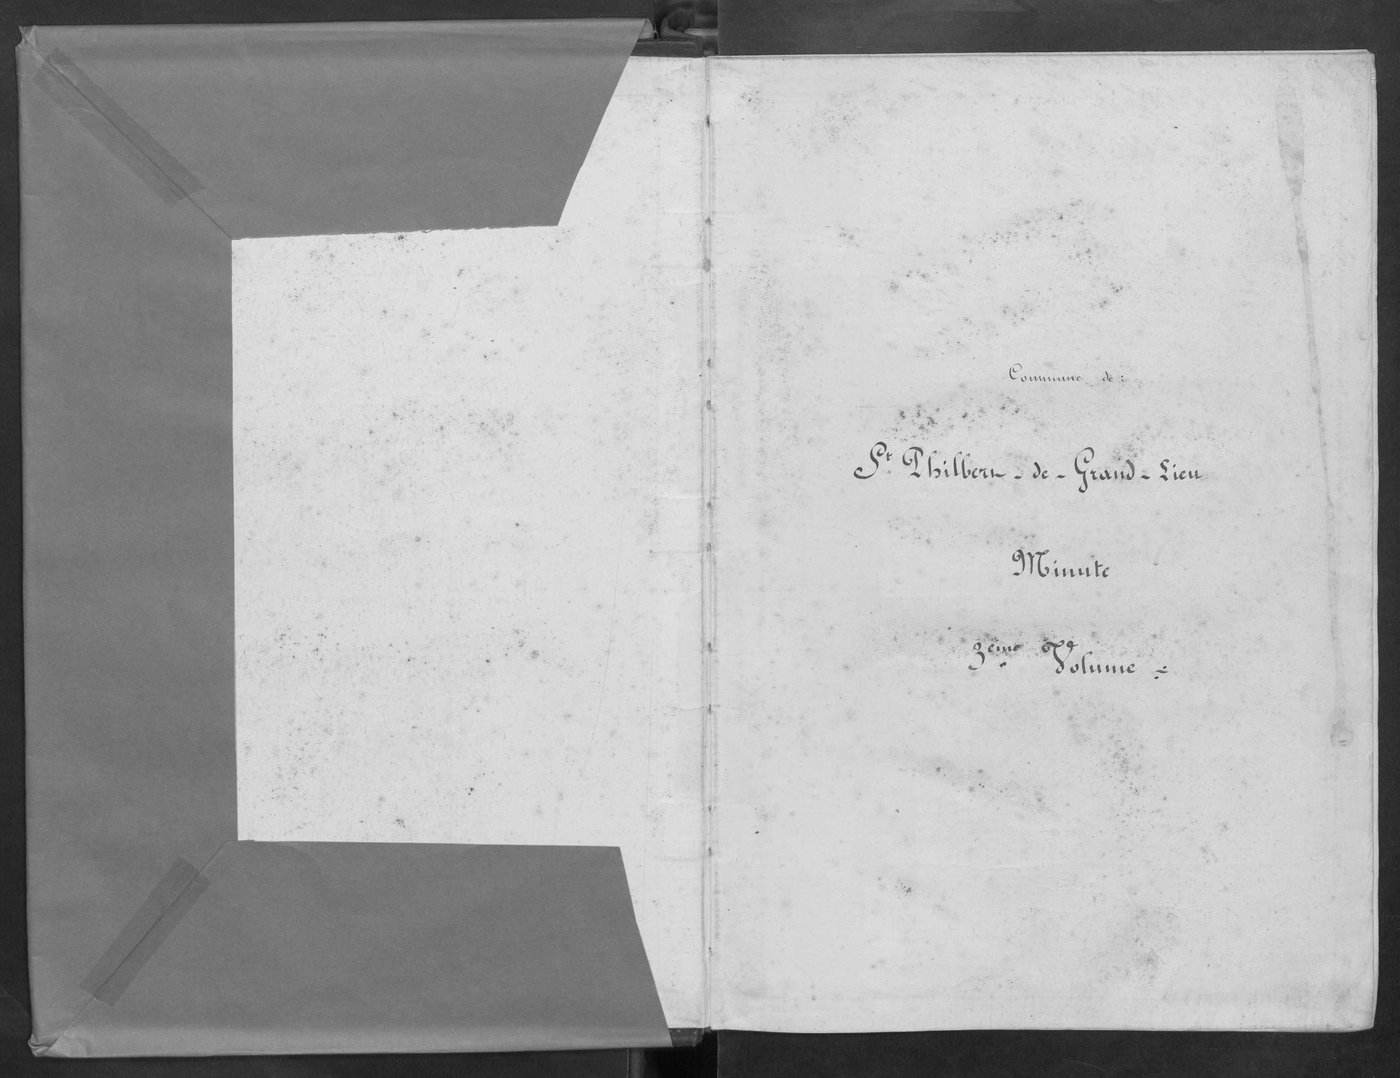 Commune de :
St. Philbert - de - Grand - Lieu
Minute
3ème Volume